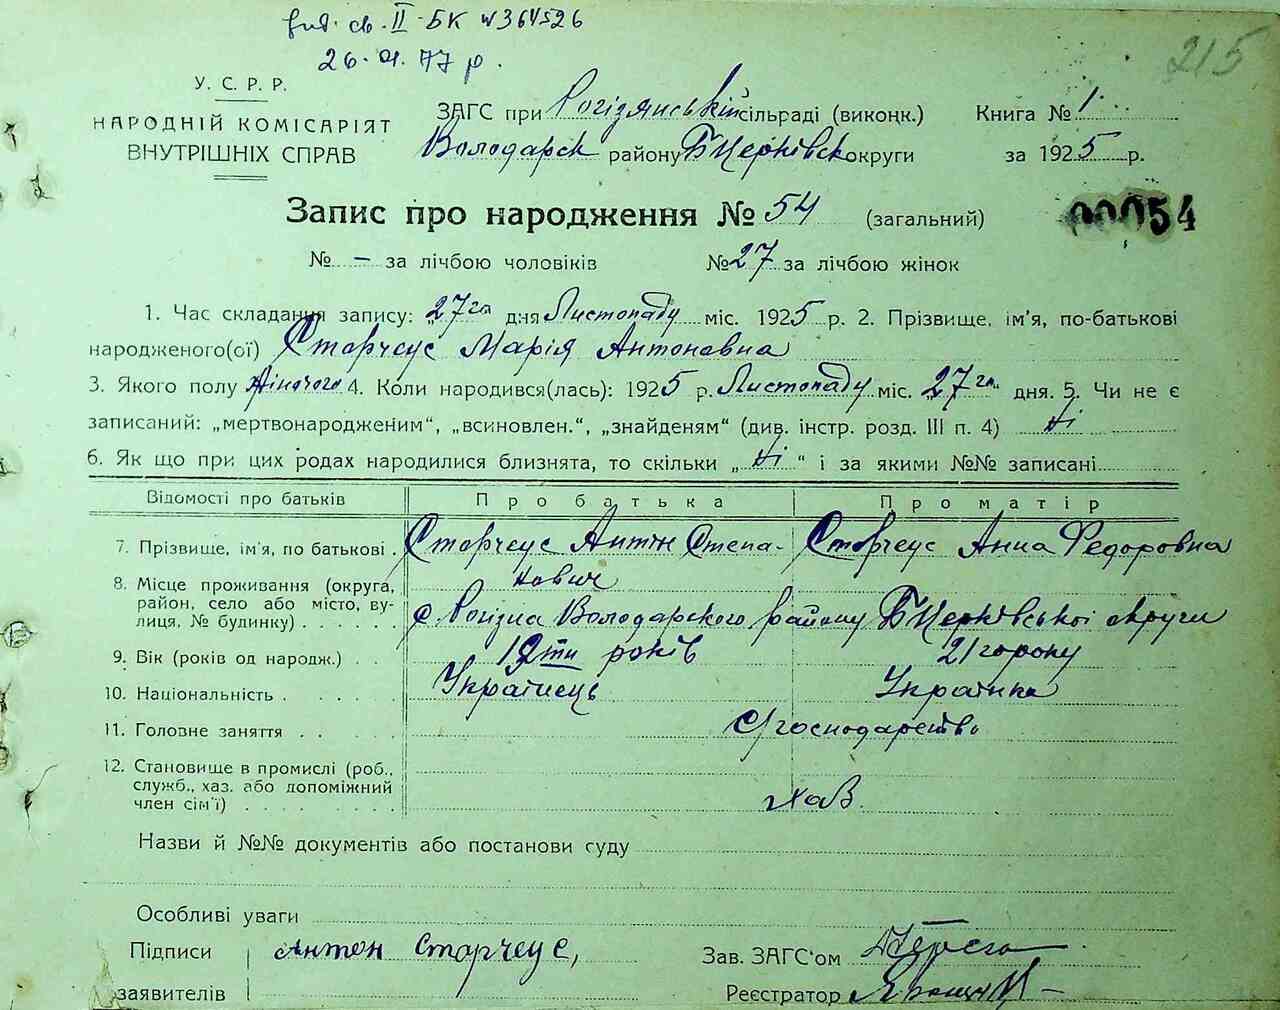 вид. св. II-БК № 364526
215
У. С. Р. Р.
НАРОДНІЙ КОМІСАРІЯТ
ВНУТРІШНІХ СПРАВ
ЗАГС при Рогізянській сільраді (виконк.) Книга № 1
Володарск району БЦерківск округи за 1925 р.
Запис про народження № 54 (загальний) 00054
№ – за лічбою чоловіків № 27 за лічбою жінок
1. Час складання запису: „27го“ дня Листопаду міс. 1925 р. 2. Прізвище, ім'я, по-батькові
народженого(ої) Сторчеус Марія Антоновна
3. Якого полу жіночого 4. Коли народився(лась): 1925 р. Листопаду міс. „27го“ дня. 5. Чи не є
записаний: „мертвонародженим“, „всиновлен.“, „знайденям“ (див. інстр. розд. III п. 4) Ні
6. Як що при цих родах народилися близнята, то скільки „Ні“ і за якими №№ записані
Відомості про батьків Про батька Про матір
7. Прізвище, ім'я, по батькові . Сторчеус Антін Степа- Сторчеус Анна Федоровна
нович
8. Місце проживання (округа,
район, село або місто, ву-
лиця, № будинку) . . . . . с. Рогізна Володарского району БЦерківської округи
9. Вік (років од народж.) . . 19ти років 21го року
10. Національність . . . . . Українець Українка
11. Головне заняття . . . . . С/господарство
12. Становище в промислі (роб.,
служб., хаз. або допоміжний
член сім'ї) . . . . . . . хаз.
Назви й №№ документів або постанови суду
Особливі уваги
Підписи Антон Сторчеус, Зав. ЗАГС'ом
заявителів Реєстратор